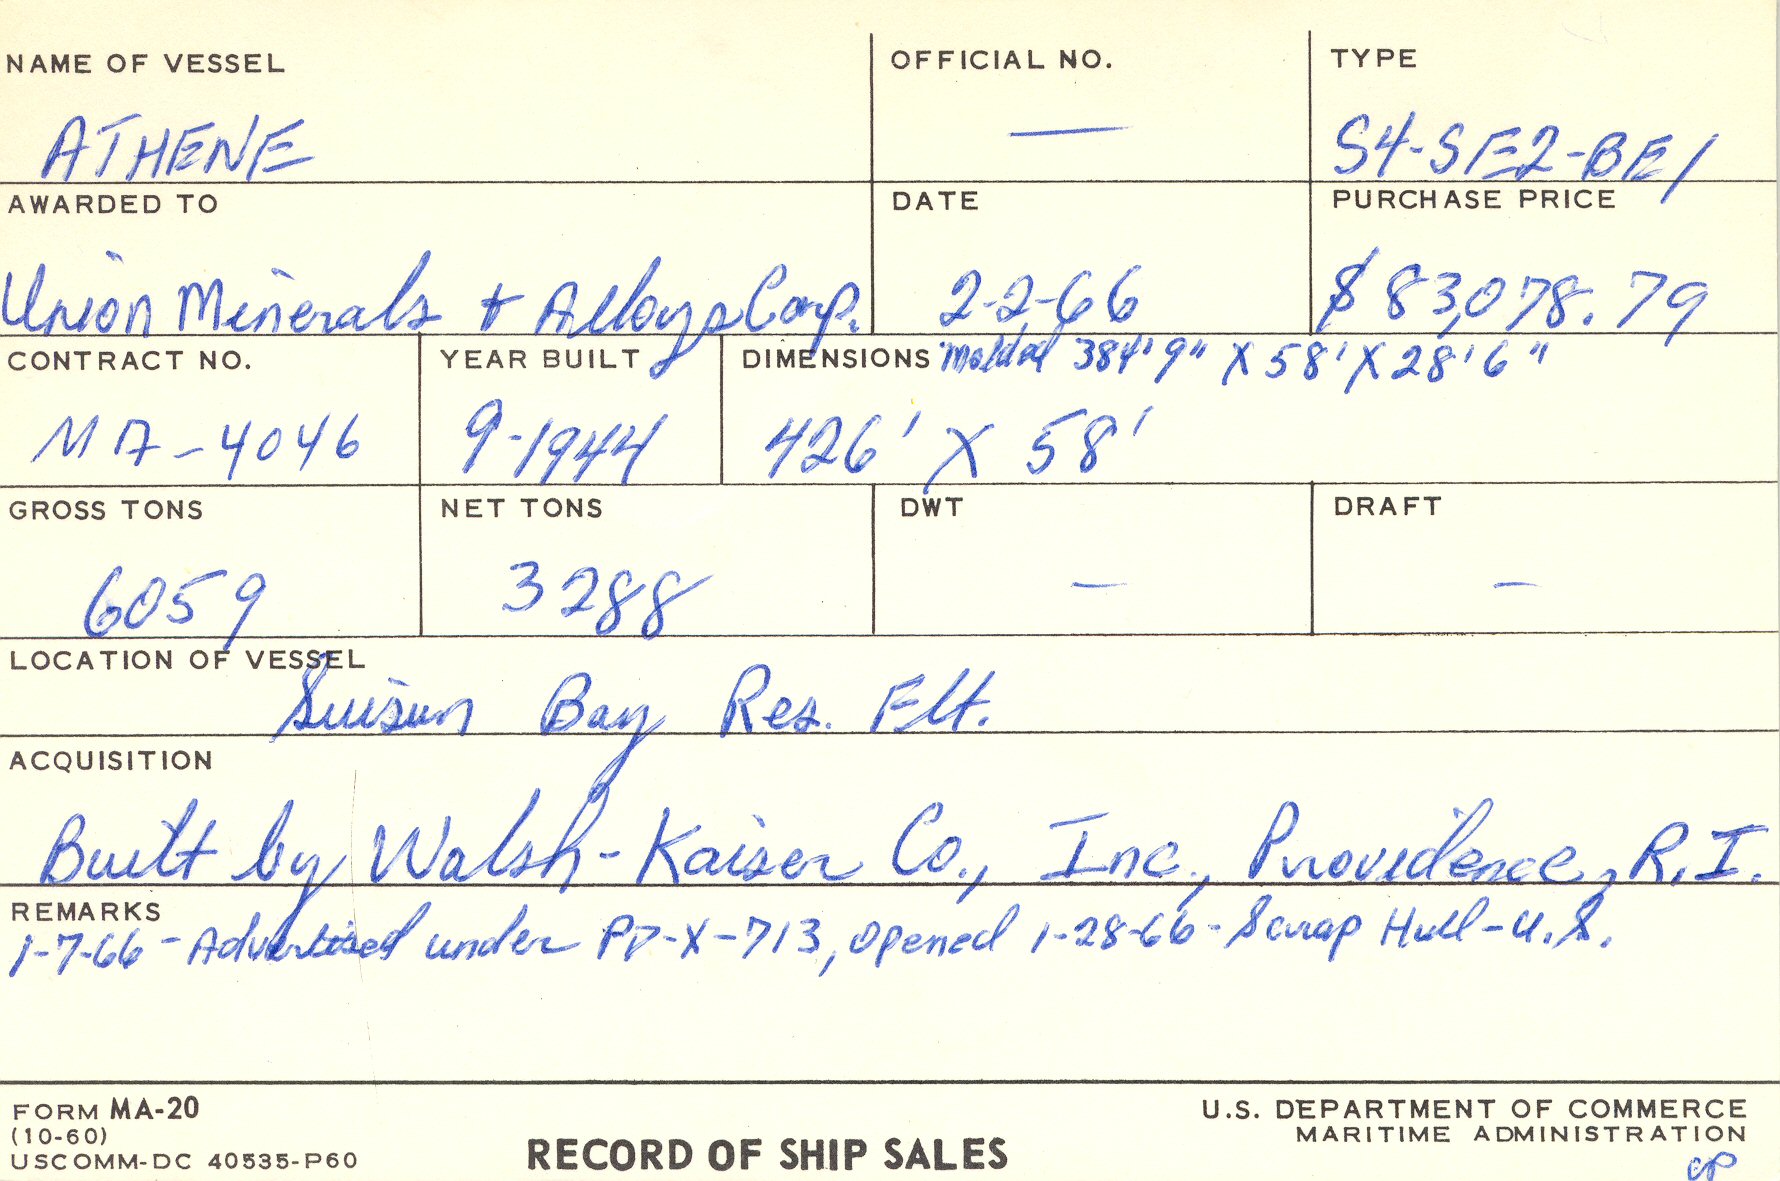 NAME OF VESSEL OFFICIAL NO. TYPE
ATHENE — S4-SE2-BE1
AWARDED TO DATE PURCHASE PRICE
Union Minerals + Alloys Corp. 2-2-66 $83,078.79
CONTRACT NO. YEAR BUILT DIMENSIONS Molded 384'9" X 58' X 28'6"
MA-4046 9-1944 426' X 58'
GROSS TONS NET TONS DWT DRAFT
6059 3288 — —
LOCATION OF VESSEL
Suisun Bay Res. Flt.
ACQUISITION
Built by Walsh-Kaiser Co., Inc., Providence, R.I.
REMARKS
1-7-66 - Advertised under PD-X-713, opened 1-28-66 - Scrap Hull - U.S.
FORM MA-20 U.S. DEPARTMENT OF COMMERCE
(10-60) MARITIME ADMINISTRATION
USCOMM-DC 40535-P60 RECORD OF SHIP SALES